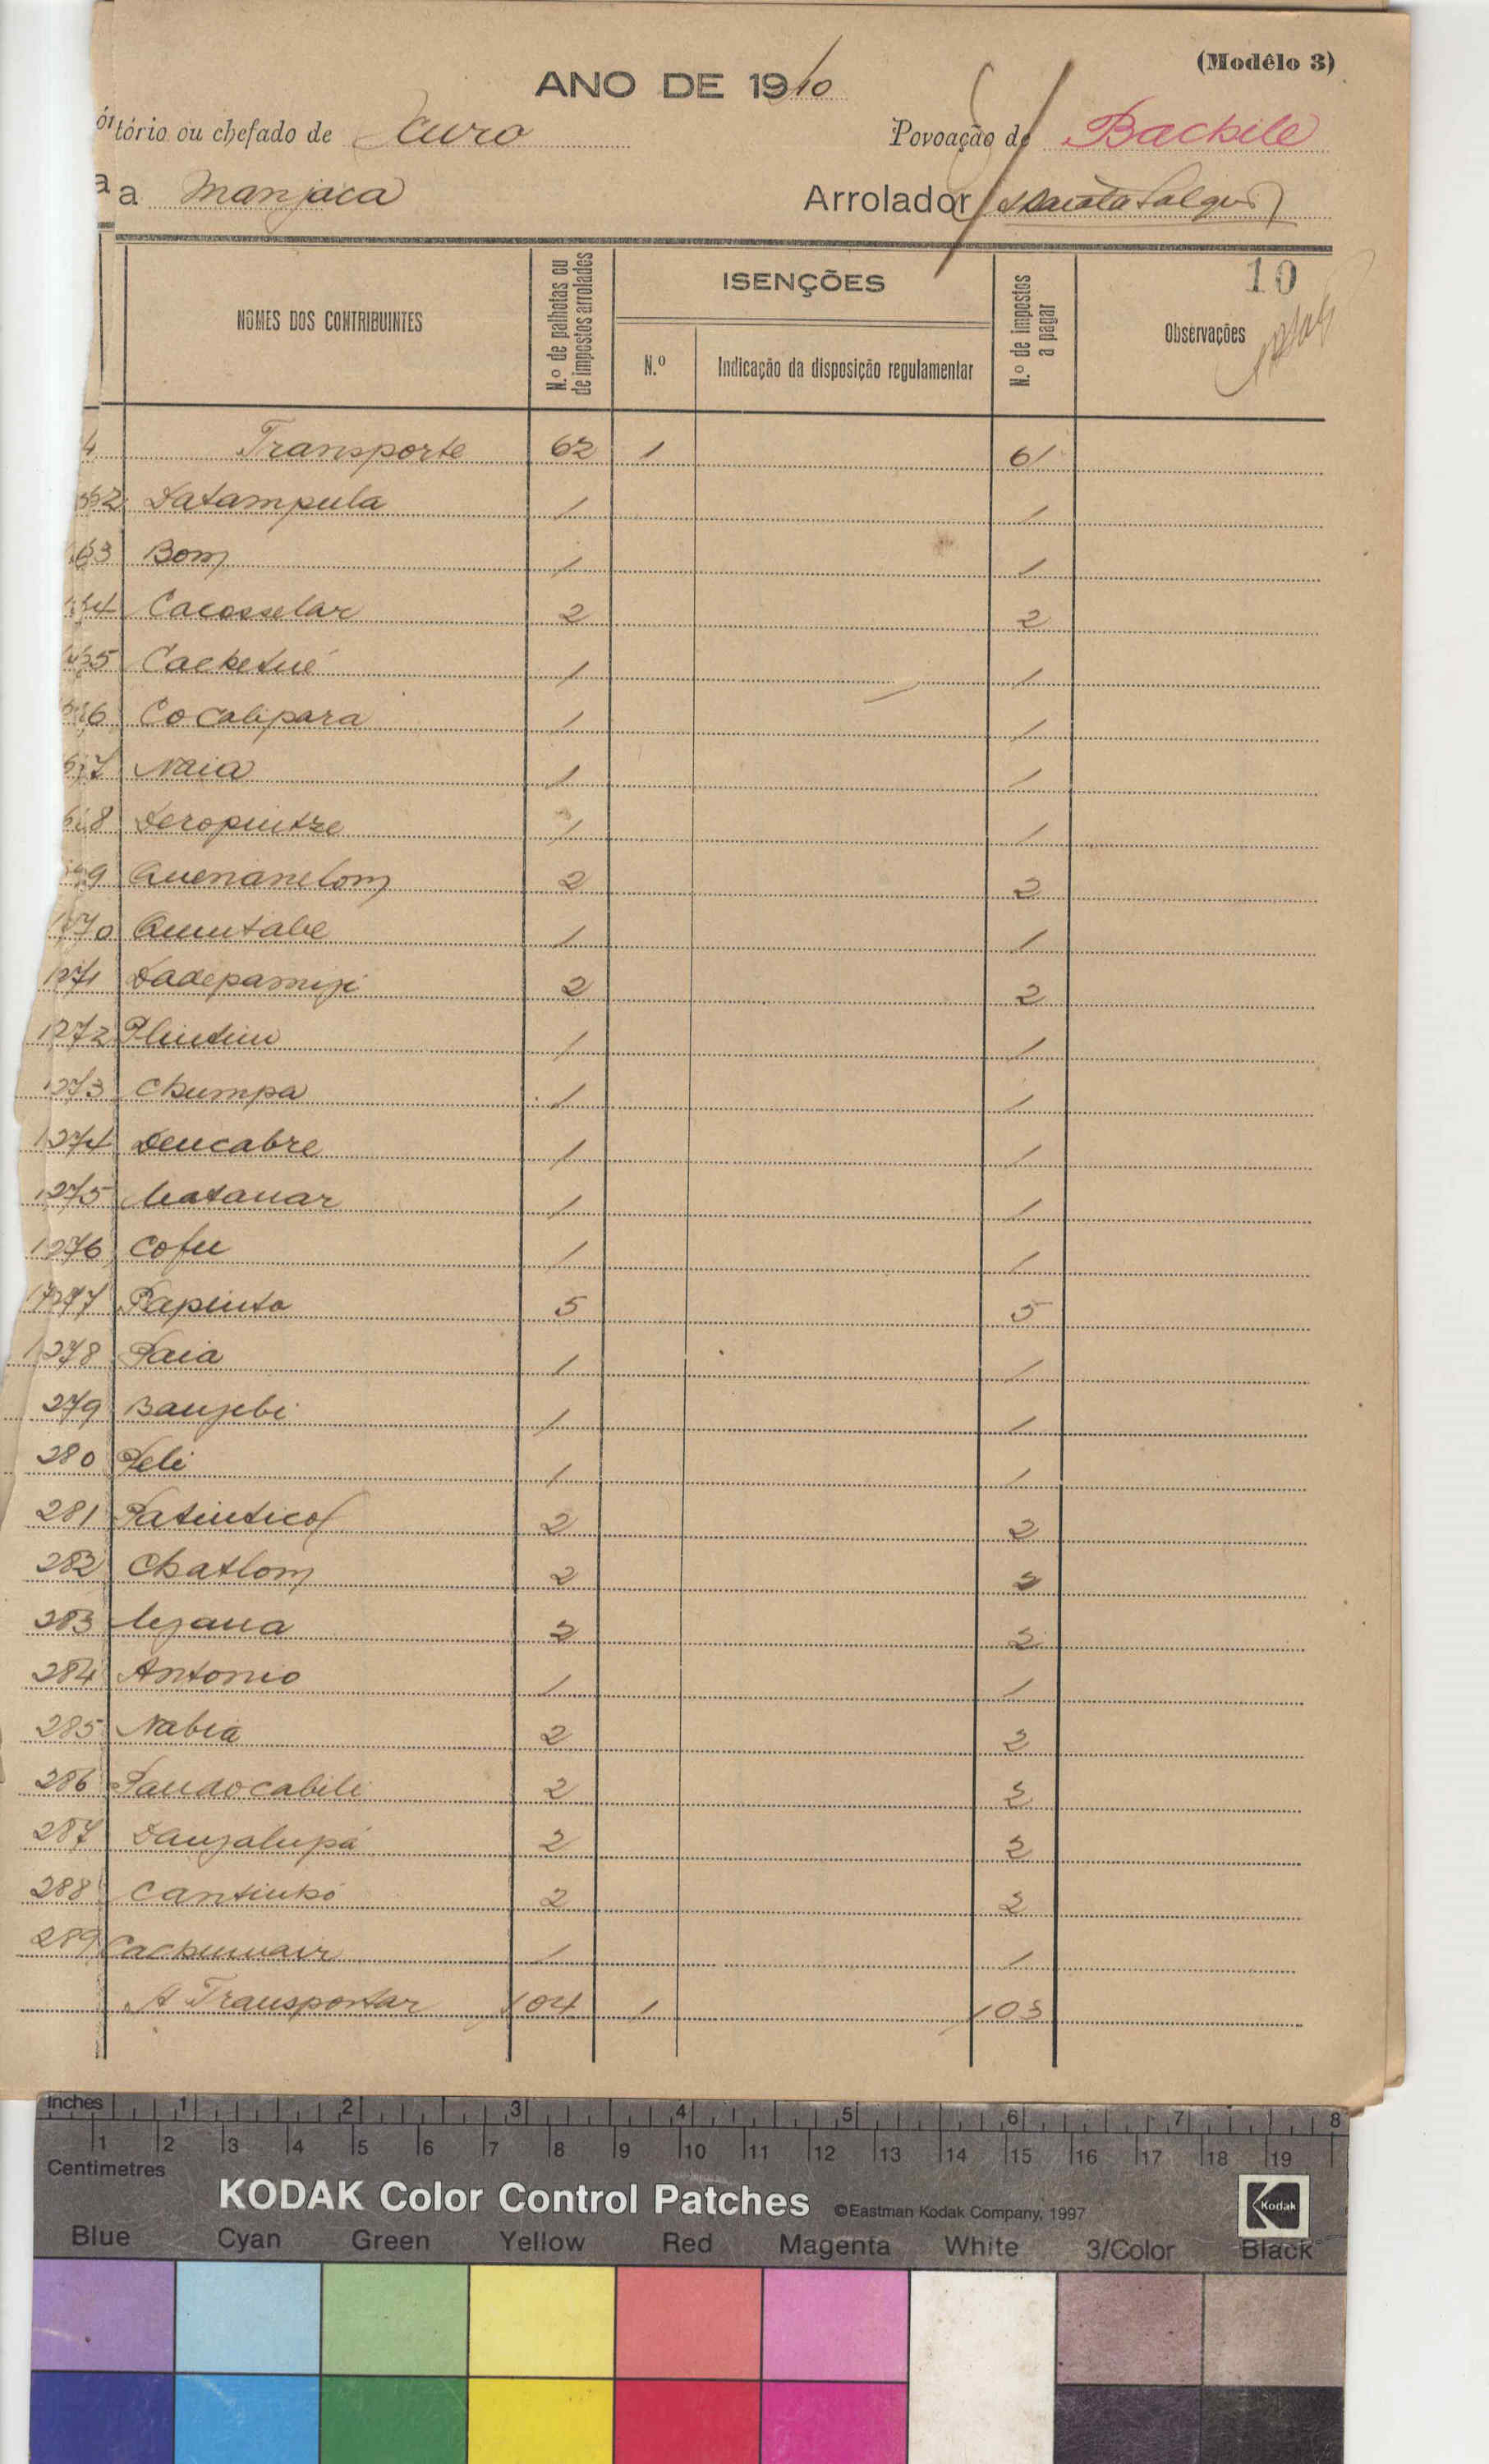 (Modêlo 3)
ANO DE 1910
tório ou chefado de Curo Povoação de Bachile
a Manjaca Arrolador
10
NOMES DOS CONTRIBUINTES N.º de palhotas ou de impostos arrolados ISENÇÕES N.º Indicação da disposição regulamentar N.º de impostos a pagar Observações
Transporte 62 1 61
Datampula 1 1
63 Bom 1 1
64 Cacosselar 2 2
65 Cachetué 1 1
66 Cocalipara 1 1
67 Naia 1 1
68 Deropintze 1 1
69 Quenanelom 2 2
1270 Quintabe 1 1
1271 Dadepamiji 2 2
1272 Plintim 1 1
1273 Chumpa 1 1
1274 Deucabre 1 1
1275 Matauar 1 1
1276 Cofu 1 1
1277 Papinto 5 5
1278 Paia 1 1
279 Banjebi 1 1
280 Peli 1 1
281 Patintica 2 2
282 Chatlom 2 2
283 2 2
284 Antonio 1 1
285 Nabia 2 2
286 Paudocabili 2 2
287 Danjalupá 2 2
288 Cantinkó 2 2
289 1 1
A Transportar 104 1 103
Inches 1 2 3 4 5 6 7 8
Centimetres 1 2 3 4 5 6 7 8 9 10 11 12 13 14 15 16 17 18 19
KODAK Color Control Patches ©Eastman Kodak Company, 1997 Kodak
Blue Cyan Green Yellow Red Magenta White 3/Color Black